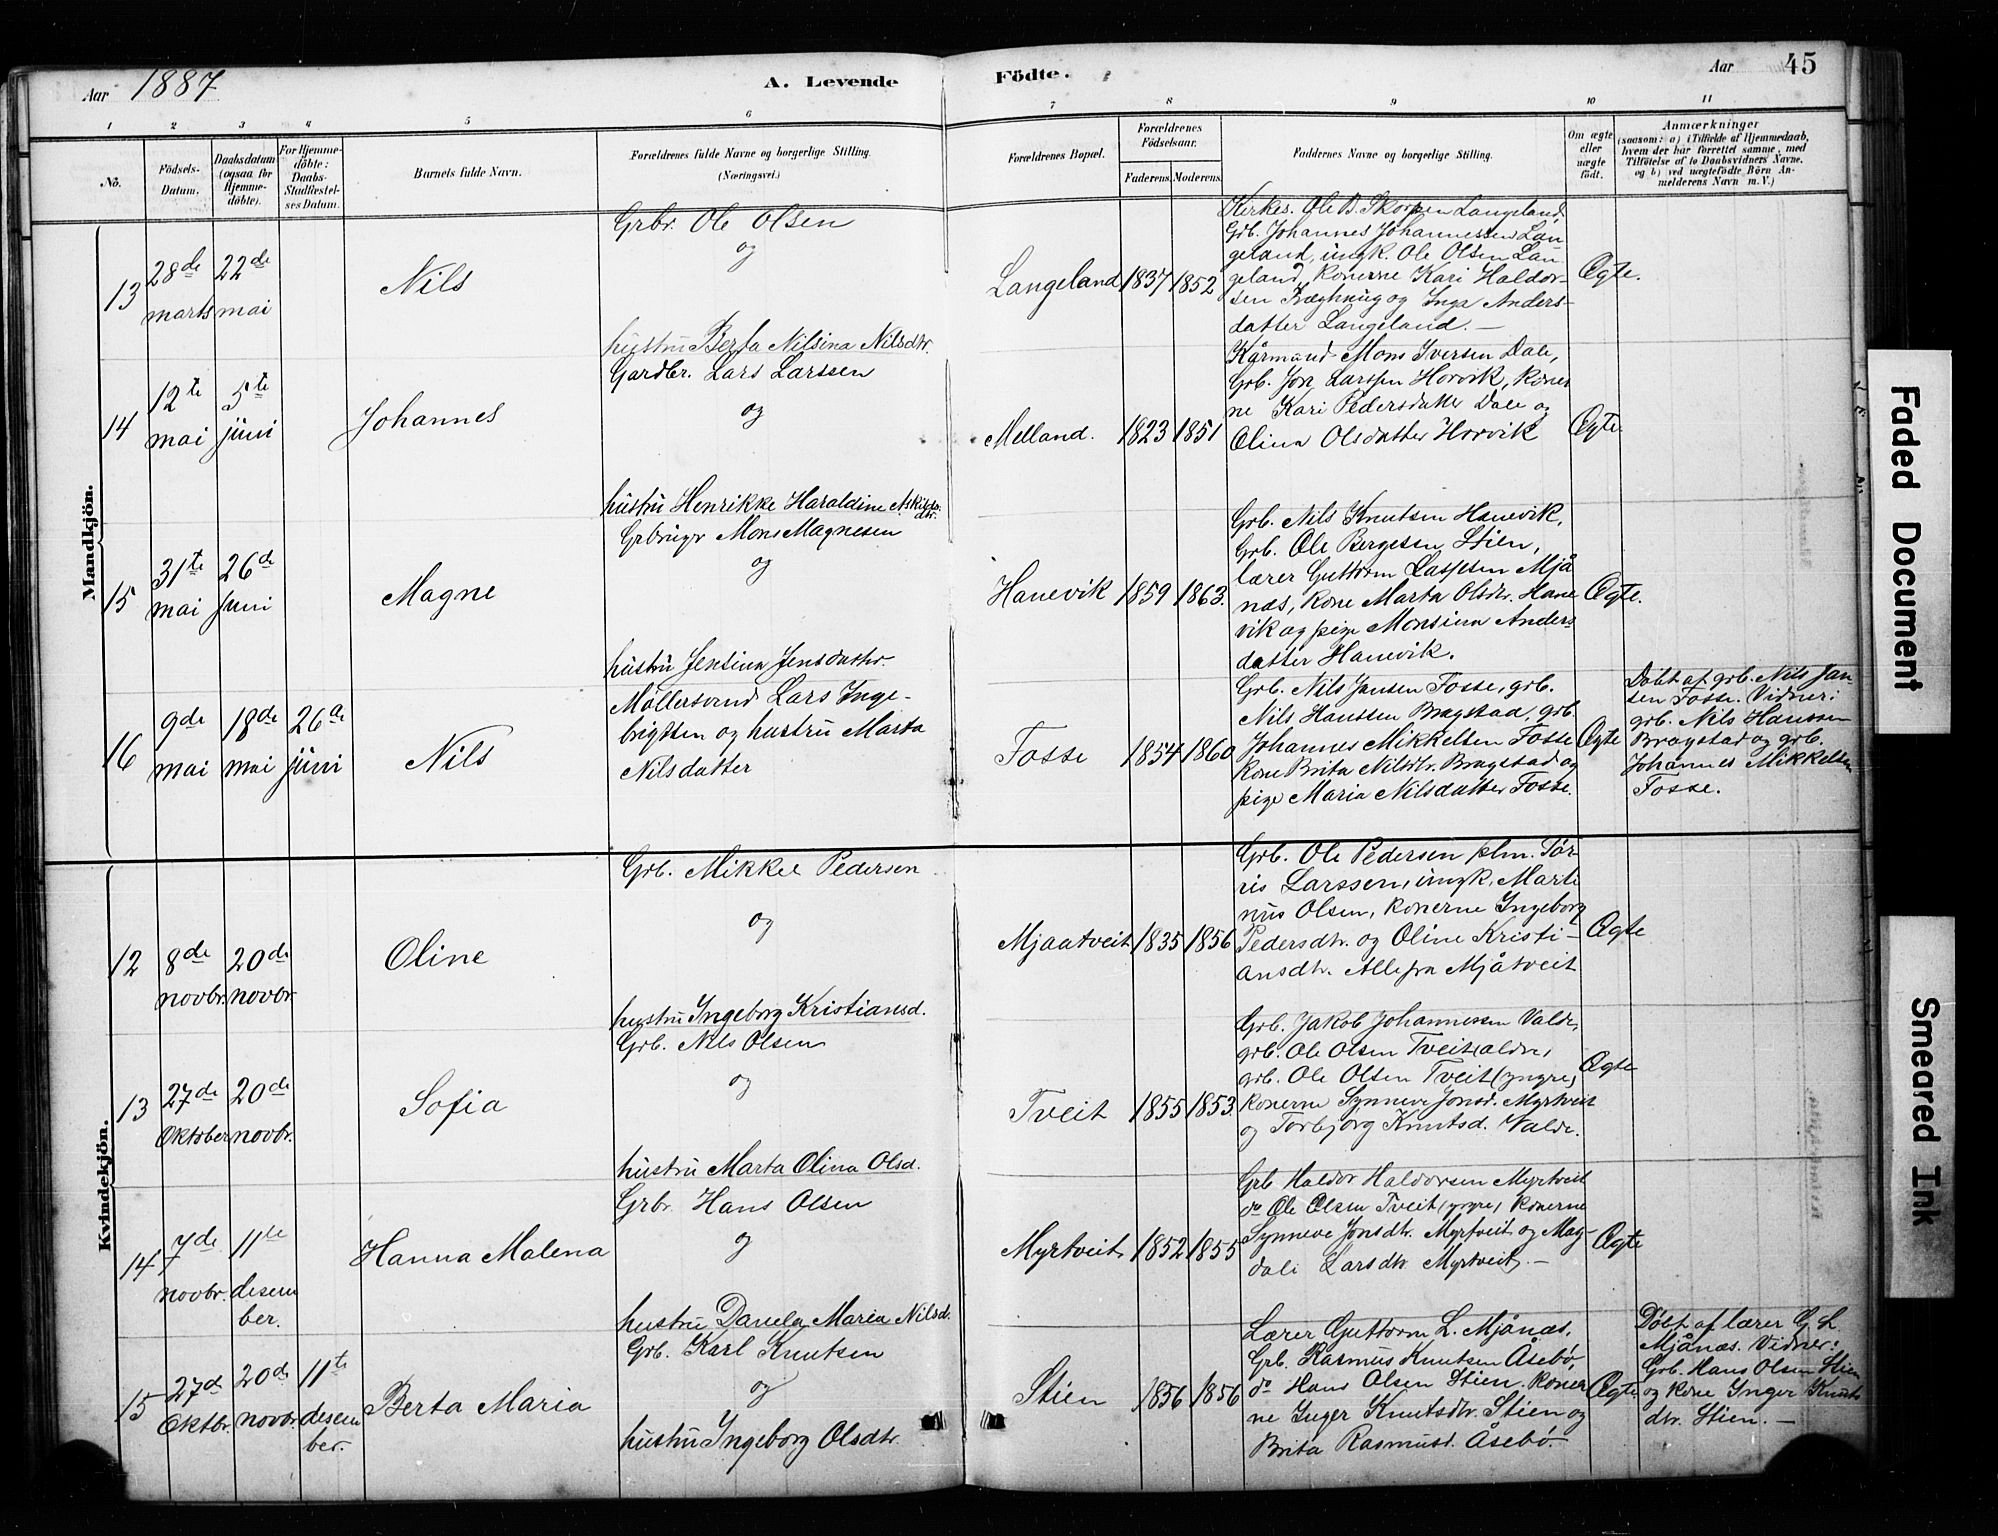 Aar 1887
A. Levende
Födte.
Aar 45
1 2 3 4 5 6 7 8 9 10 11
No.
Födsels-
Datum.
Daabsdatum
(ogsaa for
Hjemme-
döbte).
For Hjemme-
döbte:
Daabs-
Stadfæstel-
ses Datum.
Barnets fulde Navn.
Forældrenes fulde Navne og borgerlige Stilling.
(Næringsvei.)
Forældrenes Bopæl.
Forældrenes
Födselsaar.
Faderens. Moderens.
Faddernes Navne og borgerlige Stilling.
Om ægte
eller
uægte
født.
Anmærkninger
(saasom: a) i Tilfælde af Hjemmedaab,
hvem der har forrettet samme, med
Tilföielse af to Daabsvidners Navne,
og b) ved uægtefödte Börn An-
melderens Navn m. V.)
Mandkjön.
13
28de
marts
22de
mai
Nils
Grbr. Ole Olsen
og
hustru Berta Nilsina Nilsdtr.
Langeland 1837 1852
Kirkes. Ole B. Skorpen Langeland.
Grb. Johannes Johannessen Lan-
geland, ungk. Ole Olsen Lan-
geland, konerne Kari Haldor-
sen og Inga Anders-
datter Langeland. —
Ægte.
14
12te
mai
5te
juni
Johannes
Gardbr. Lars Larssen
og
hustru Henrikke Haraldine Askilds-
dtr.
Melland. 1823 1851
Kårmand Mons Iversen Dale,
Grb. Jon Larssen Horvik, koner
ne Kari Pedersdatter Dale og
Olina Olsdatter Horvik
Ægte.
15
31te
mai
26d
Juni
Magne
Grbrugr Mons Magnesen
og
hustru Jensina Jensdatter.
Hanevik 1859 1863.
Grb. Nils Knutsen Hanevik,
Grb. Ole Bergesen Stien,
lærer Guttorm Lassesen Mjå
næs, kone Marta Olsdtr. Hane
vik og pige Monsina Anders
datter Hanevik.
Ægte.
16
9de
mai
18de
mai
26de
juni
Nils
Möllersvend Lars Inge-
brigtsen og hustru Marta
Nilsdatter
Fosse 1854 1860
Grb. Nils Jansen Fosse, grb.
Nils Hanssen Bragstad, grb.
Johannes Mikkelsen Fosse
kone Brita Nilsdtr. Bragstad og
pige Maria Nilsdatter Fosse.
Ægte
Döbt af grb. Nils Jan-
sen Fosse. Vidner:
grb. Nils Hanssen
Bragstad og grb.
Johannes Mikkelsen
Fosse.
Kvindekjön.
12
8de
novbr.
20de
novbr.
Oline
Grb. Mikkel Pedersen
og
hustru Ingeborg Kristiansd.
Mjaatveit 1835 1856
Grb. Ole Pedersen plm. Tör-
ris Larssen, ungk. Marti
nus Olsen, konerne Ingeborg
Pedersdtr. og Oline Kristi-
ansdtr. Alle fra Mjåtveit
Ægte
13
27de
Oktober
20de
novbr.
Sofia
Grb. Nils Olsen
og
hustru Marta Olina Olsd.
Tveit 1855 1853.
Grb. Jakob Johannessen Valde,
grb. Ole Olsen Tveit (ældre,
grb. Ole Olsen Tveit (yngre,
konerne Synneve Jonsd. Myrtveit
og Torbjorg Knutsd. Valde.
Ægte
14
7de
novbr.
11te
desem
ber.
Hanna Malena
Grbr. Hans Olsen
og
hustru Danela Maria Nilsd.
Myrtveit 1852 1855
Grb Haldor Haldorsen Myrtveit
do Ole Olsen Tveit (yngre, konerne
Synneve Jonsdtr. Myrtveit og Mag-
dali Larsdtr Myrtveit. —
Ægte
15
27d
Oktbr.
20d
novbr.
11te
desem
ber.
Berta Maria
Grb. Karl Knutsen
og
hustru Ingeborg Olsdtr.
Stien 1856 1856
Lærer Guttorm L. Mjånæs,
Grb. Rasmus Knutsen Åsebö,
do Hans Olsen Stien. koner
ne Inger Knutsdtr. Stien og
Brita Rasmusd. Åsebö.
Ægte.
Döbt af lærer G. L.
Mjånæs. Vidner:
Grb. Hans Olsen Stien
og kone Inger Knuts
dtr. Stien. —
Faded Document
Smeared Ink